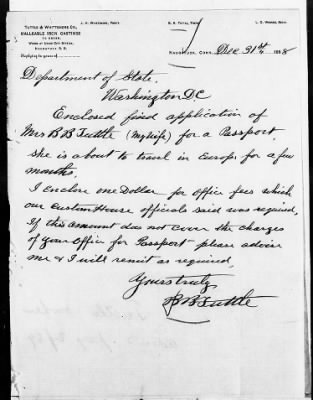 TUTTLE & WHITTEMORE CO.
MALLEABLE IRON CASTINGS
TO ORDER.
NAUGATUCK, CONN. Dec 31st 1888
Department of State.
Washington DC
Enclosed find application of
Mrs B B Tuttle (my wife) for a Passport.
She is about to travel in Europe for a few
months.
I enclose one Dollar for Office fees which
our Custom House officials said was required,
If this amount does not cover the charges
of your Office for Passport please advise
me & I will remit as required,
Yours truly,
B B Tuttle